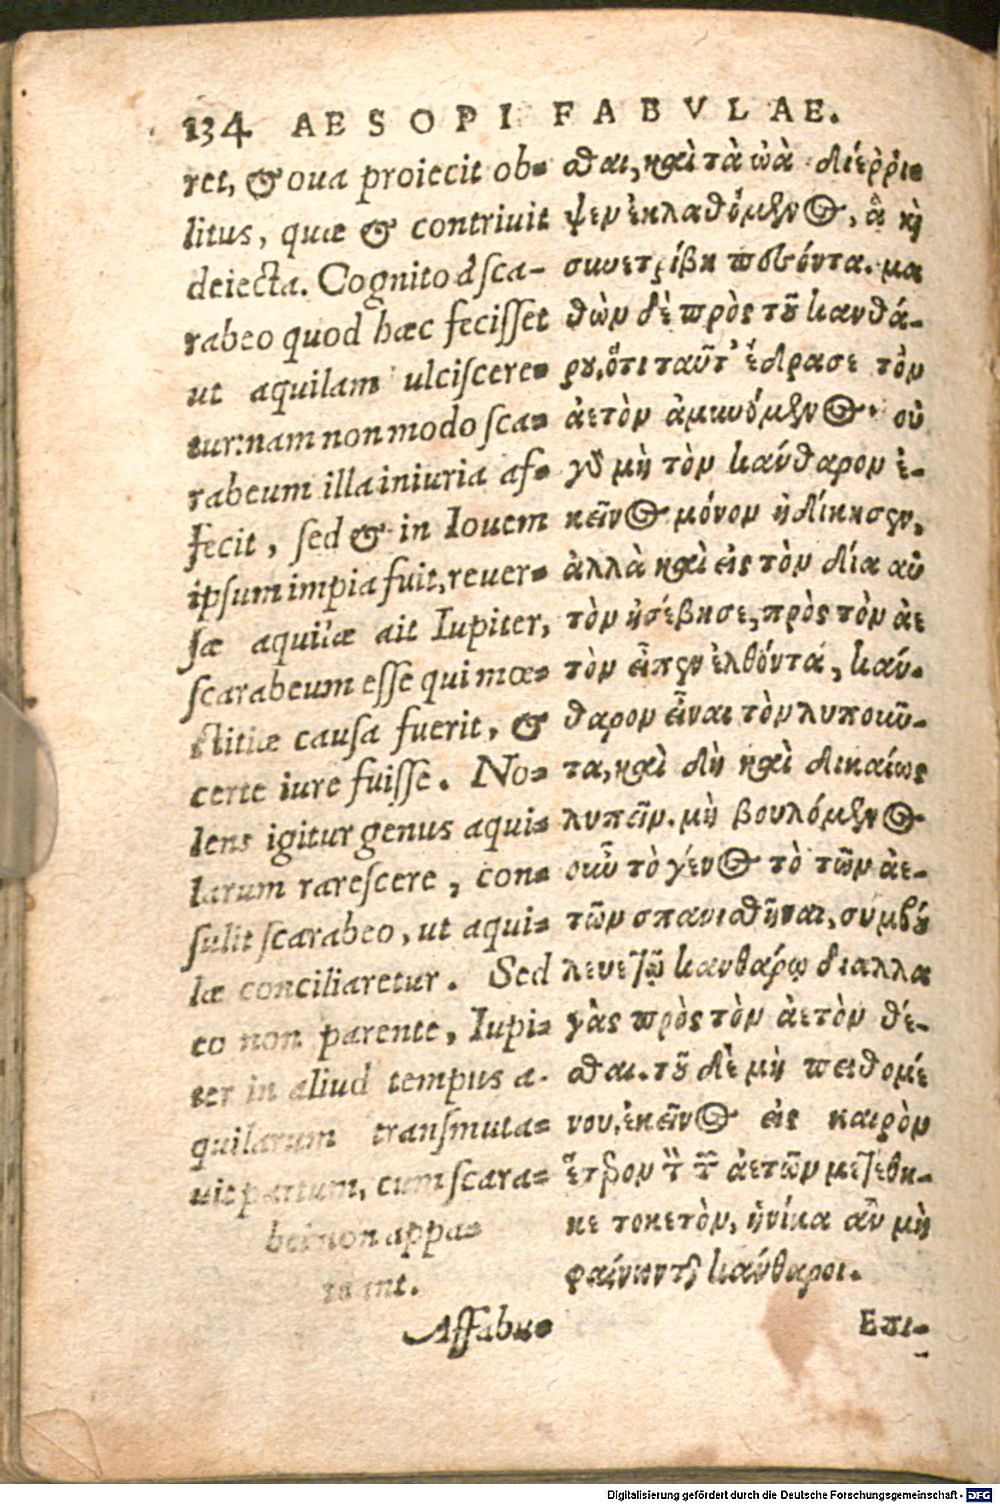 134 AESOPI FABVLAE.
ret, & oua proiecit ob-
litus, quæ & contriuit
deiecta. Cognito aͣ sca-
rabeo quod hæc fecisset
ut aquilam ulciscere-
tur: nam non modo sca-
rabeum illa iniuria af-
fecit, sed & in Iouem
ipsum impia fuit, reuer-
sæ aquilæ ait Iupiter,
scarabeum esse qui mœ-
stitiæ causa fuerit, &
certe iure fuisse. No-
lens igitur genus aqui-
larum rarescere, con-
sulit scarabeo, ut aqui-
læ conciliaretur. Sed
eo non parente, Iupi-
ter in aliud tempus a-
quilarum transmuta-
uit partum, cum scara-
bei non appa-
reant.
Affabu-
σθαι, καὶ τὰ ὠὰ διέῤῥι-
ψεν ἐκλαθόμενος, ἃ κὶ
συνετρίβη πεσόντα. μα
θὼν δὲ πρὸς τοῦ κανθά-
ρου, ὅτι ταῦτ' ἔδρασε τὸν
ἀετὸν ἀμυνόμενος. οὐ
γὸ μὴ τὸν κάνθαρον ἐ-
κεῖνος μόνον ἠδίκησεν,
ἀλλὰ καὶ εἰς τὸν δία αὐ
τὸν ἠσέβησε, πρὸς τὸν ἀε
τὸν εἶπεν ἐλθόντα, κάν-
θαρον εἶναι τὸν λυποῦν-
τα, καὶ δὴ καὶ δικαίως
λυπεῖν. μὴ βουλόμενος
οὖν τὸ γένος τὸ τῶν ἀε-
τῶν σπανισθῆναι, συμβού
λευε τῷ κανθάρῳ διαλλα
γὰς πρὸς τὸν ἀετὸν θέ-
σθαι. τοῦ δὲ μὴ πειθομέ
νου, ἐκεῖνος εἰς καιρὸν
ἕτερον τὸ τῶν ἀετῶν μετέθη-
κε τοκετὸν, ἡνίκα ἂν μὴ
φαίνωνται κάνθαροι.
Επι-
Digitalisierung gefördert durch die Deutsche Forschungsgemeinschaft - DFG